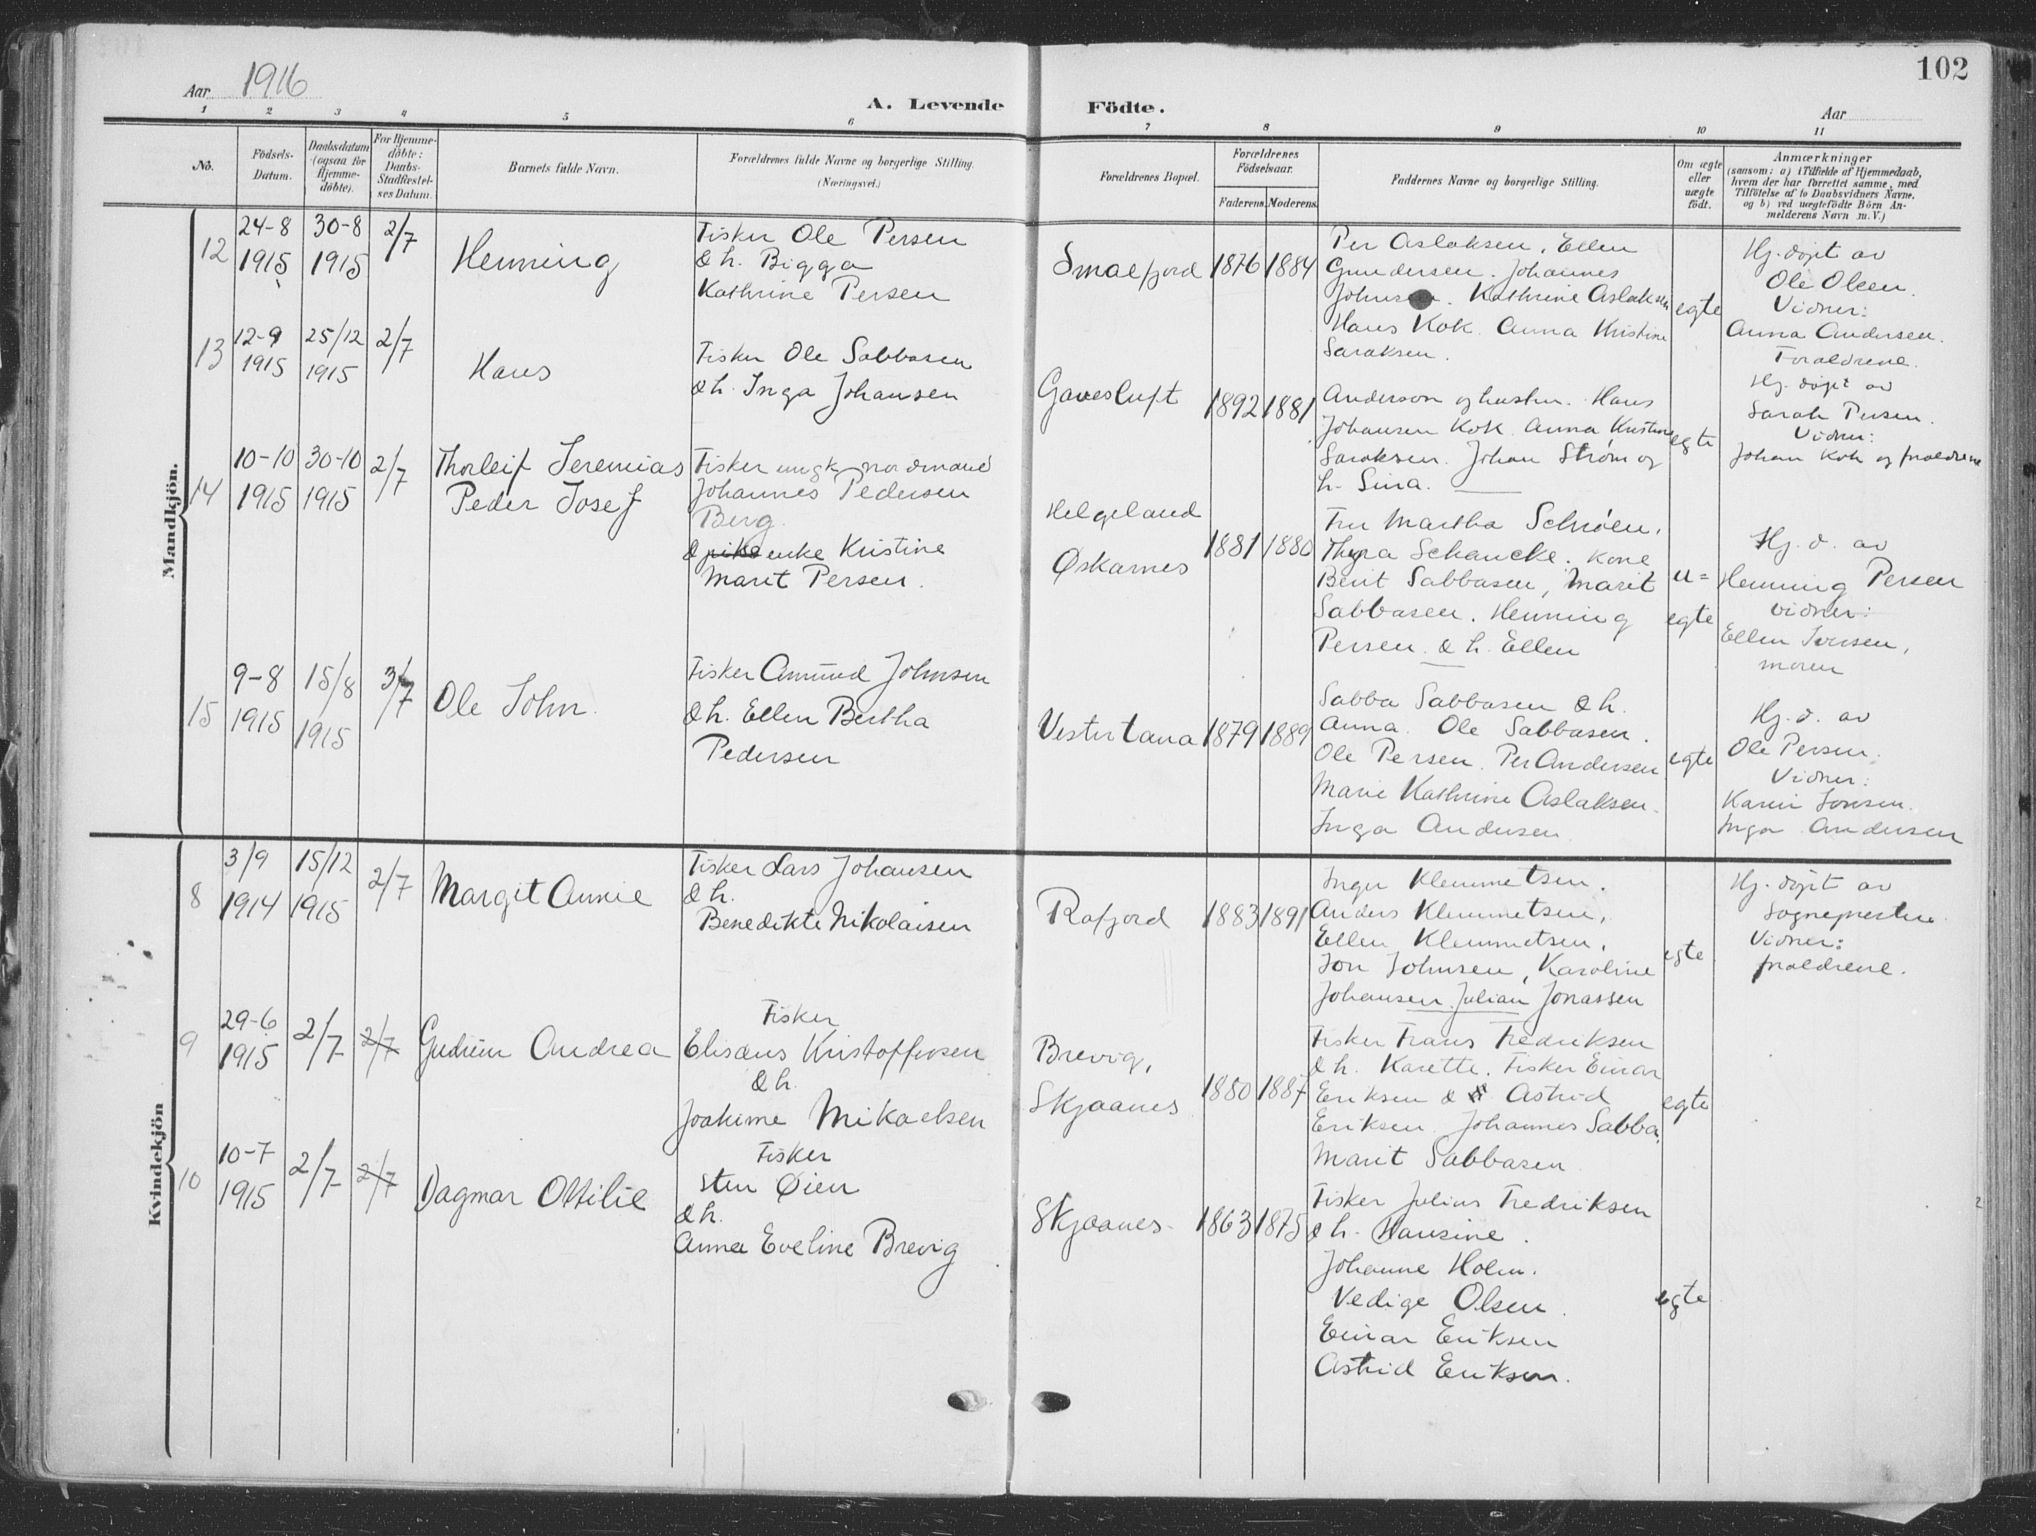 102
Aar 1916
A. Levende Födte.
Aar
1 2 3 4 5 6 7 8 9 10 11
No.
Födsels-
Datum.
Daabsdatum
(ogsaa for
Hjemme-
döbte).
For Hjemme-
döbte:
Daabs-
Stadfæstel-
ses Datum.
Barnets fulde Navn.
Forældrenes fulde Navne og borgerlige Stilling.
(Næringsvei.)
Forældrenes Bopæl.
Forældrenes
Födselsaar.
Faderens. Moderens.
Faddernes Navne og borgerlige Stilling.
Om ægte
eller
uægte
födt.
Anmærkninger
(saasom: a) i Tilfælde af Hjemmedaab,
hvem der har forrettet samme, med
Tilföielse af to Daabsvidners Navne,
og b) ved uægtefödte Börn An-
melderens Navn m. V.)
Mandkjön.
12
24-8
1915
30-8
1915
2/7
Henning
Fisker Ole Persen
& h. Bigga
Kathrine Persen
Smalfjord
1876
1884
Per Aslaksen. Ellen
Gundersen. Johannes
Johnsen. Kathrine Aslaksen
Hans Kok. Anna Kristine
Saraksen.
egte
Hj. døpt av
Ole Olsen.
Vidner:
Anna Andersen.
Foraldrene.
13
12-9
1915
25/12
1915
2/7
Hans
Fisker Ole Sabbasen
& h. Inga Johansen
Gavesluft
1892
1881
Anderson og hustru. Hans
Johansen Kok. Anna Kristine
Saraksen. Johan Strøm og
h. Sina.
egte
Hj. døpt av
Sarah Persen.
Vidner:
Johan Kok og foraldrene
14
10-10
1915
30-10
1915
2/7
Thorleif Jeremias
Peder Josef
Fisker ungk. nordmand
Johannes Pedersen
Berg.
& pike enke Kristine
Marit Persen.
Helgeland
Øskarnes
1881
1880
Fru Martha Schrøen,
Thyra Schancke. Kone
Berit Sabbasen, Marit
Sabbasen. Henning
Persen. & h. Ellen
u=
egte
Hj. d. av
Henning Persen
vidner:
Ellen Iversen,
moren
15
9-8
1915
15/8
1915
3/7
Ole John
Fisker Amund Johnsen
& h. Ellen Bertha
Pedersen
Vestertana
1879
1889
Sabba Sabbasen & h.
Anna. Ole Sabbasen.
Ole Persen. Per Andersen
Marie Kathrine Aslaksen.
Inga Andersen
egte
Hj. d. av
Ole Persen.
Vidner:
Karen Iversen.
Inga Andersen
Kvindekjön
8
3/9
1914
15/12
1915
2/7
Margit Annie
Fisker Lars Johansen
& h.
Benedikte Nikolaisen
Rafjord
1883
1891
Inger Klemmetsen.
Anders Klemmetsen,
Ellen Klemmetsen,
Jon Johnsen, Karoline
Johansen. Julian Jonassen
egte
Hj. døpt av
Sognepresten
Vidner:
foraldrene.
9
29-6
1915
2/7
2/7
Gudrun Andrea
Fisker
Elisæus Kristoffersen
& h.
Joakime Mikaelsen
Brevig,
Skjaanes
1880
1887
Fisker Frans Fredriksen
& h. Karette. Fisker Einar
Eriksen & Astrid
Eriksen. Johannes Sabba.
Marit Sabbasen
egte
10
10-7
1915
2/7
2/7
Dagmar Ottilie
Fisker
Sten Øien
& h.
Anna Eveline Brevig
Skjaanes.
1863
1875
Fisker Julius Fredriksen
& h. Hansine.
Johanne Holm.
Vedige Olsen.
Einar Eriksen
Astrid Eriksen.
egte